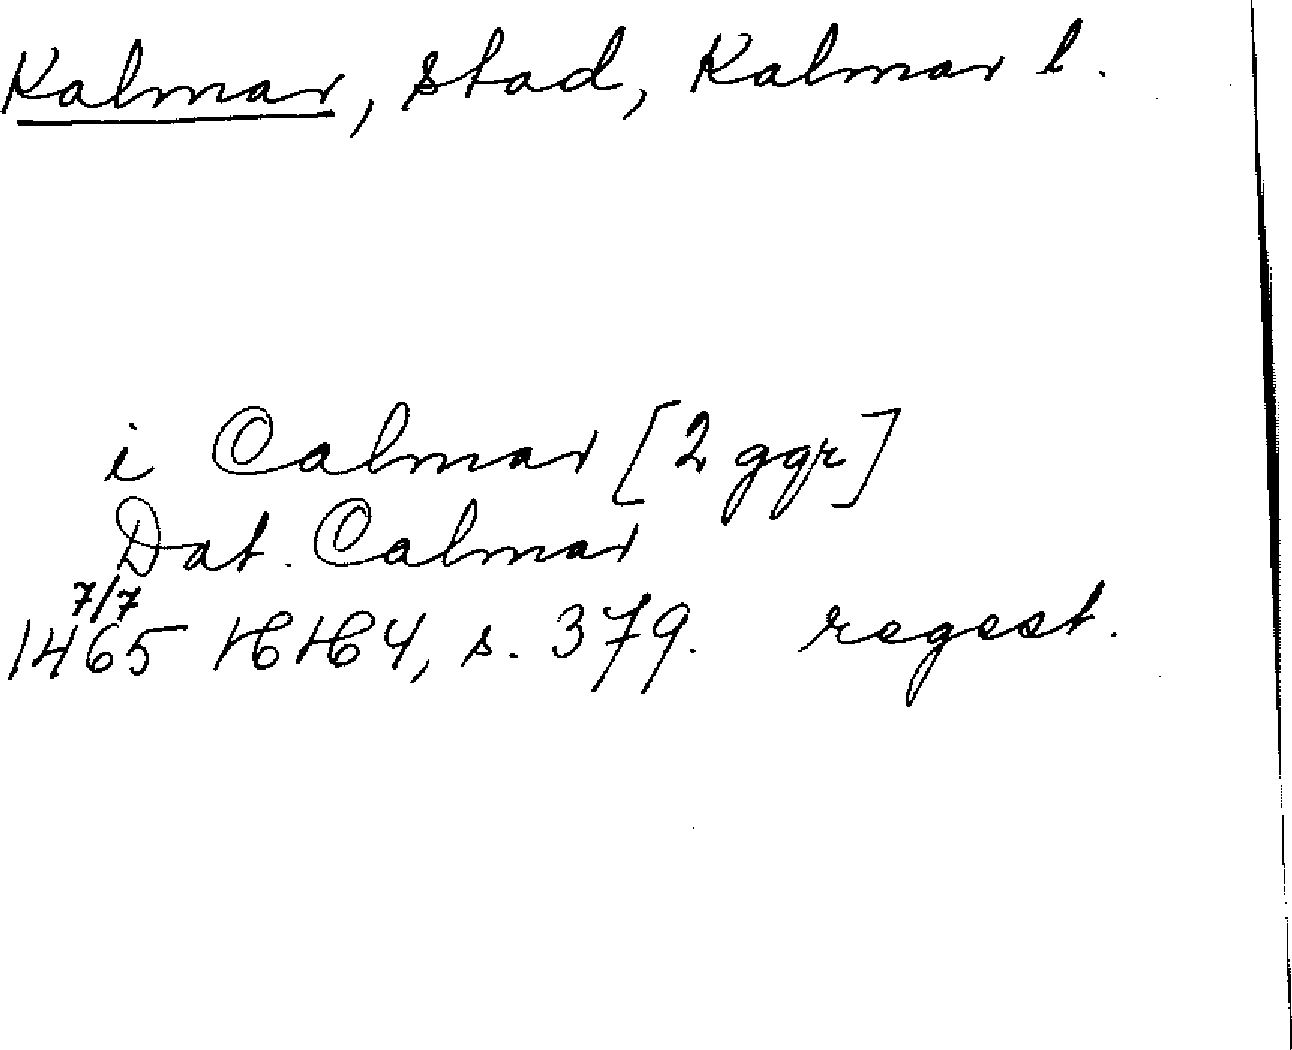 Kalmar, stad, Kalmar l.
i Calmar [2 ggr]
Dat. Calmar
7/7
1465 HH 4, s. 379. regest.